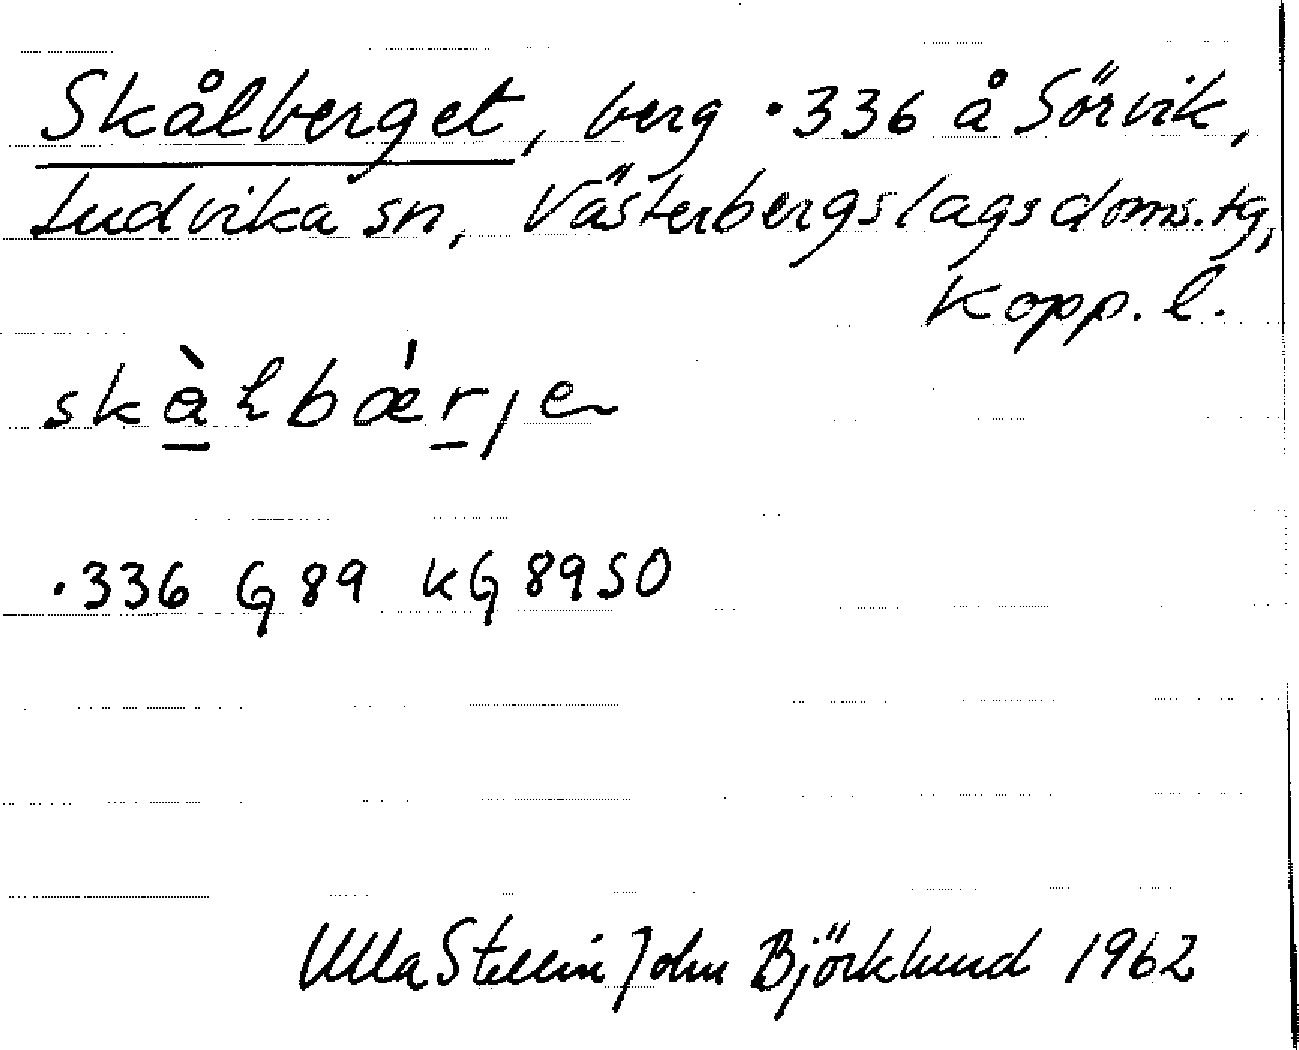 Skålberget, berg .336 å Sörvik,
Ludvika sn, Västerbergslags doms. tg,
Kopp. l.
skàɫbǽrje
.336 G 89 kG 8950
Ulla Stellin John Björklund 1962